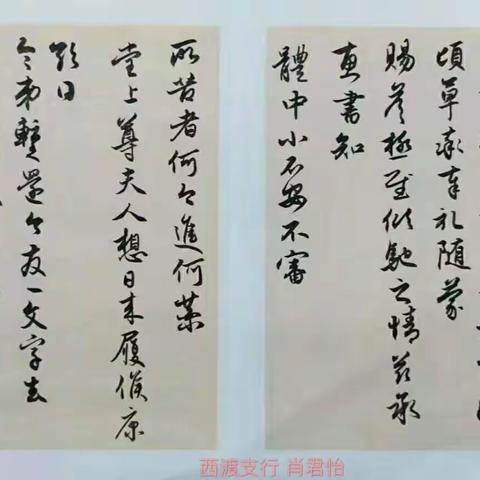 頃草率奉礼随蒙
賜答極慰馳之情茲承
惠書知
體中小不安不審
所苦者何今進何藥
堂上尊夫人想日來履候康
日
令弟暫還令友一文字去
西渡支行 肖君怡